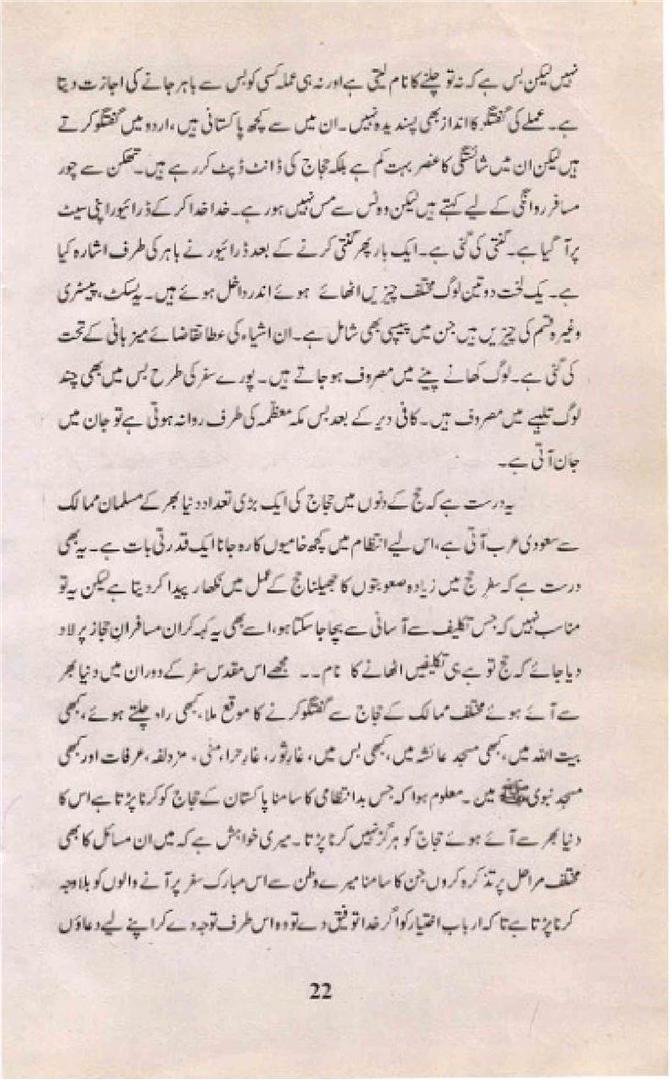 نہیں لیکن بس ہے کہ نہ تو چلنے کا نام لیتی ہے اور نہ ہی عملہ کسی کو بس سے باہر جانے کی اجازت دیتا
ہے۔ عملے کی گفتگو کا انداز بھی پسندیدہ نہیں۔ ان میں سے کچھ پاکستانی ہیں، اردو میں گفتگو کرتے
ہیں لیکن ان میں شائستگی کا عنصر بہت کم ہے بلکہ حجاج کی ڈانٹ ڈپٹ کر رہے ہیں۔ تھکن سے چور
مسافر روانگی کے لیے کہتے ہیں لیکن وہ ٹس سے مس نہیں ہو رہے۔ خدا خدا کر کے ڈرائیور اپنی سیٹ
پر آ گیا ہے۔ گنتی کی گئی ہے۔ ایک بار پھر گنتی کرنے کے بعد ڈرائیور نے باہر کی طرف اشارہ کیا
ہے۔ یک لخت دو تین لوگ مختلف چیزیں اٹھائے ہوئے اندر داخل ہوئے ہیں۔ یہ بسکٹ، پیسٹری
وغیرہ قسم کی چیزیں ہیں جن میں پیپسی بھی شامل ہے۔ ان اشیاء کی عطا تقاضائے میزبانی کے تحت
کی گئی ہے۔ لوگ کھانے پینے میں مصروف ہو جاتے ہیں۔ پورے سفر کی طرح بس میں بھی چند
لوگ تلبیے میں مصروف ہیں۔ کافی دیر کے بعد بس مکہ معظمہ کی طرف روانہ ہوتی ہے تو جان میں
جان آتی ہے۔
یہ درست ہے کہ حج کے دنوں میں حجاج کی ایک بڑی تعداد دنیا بھر کے مسلمان ممالک
سے سعودی عرب آتی ہے، اس لیے انتظام میں کچھ خامیوں کا رہ جانا ایک قدرتی بات ہے۔ یہ بھی
درست ہے کہ سفرِ حج میں زیادہ صعوبتوں کا جھیلنا حج کے عمل میں نکھار پیدا کر دیتا ہے لیکن یہ تو
مناسب نہیں کہ جس تکلیف سے آسانی سے بچا جا سکتا ہو، اسے بھی یہ کہہ کر ان مسافرانِ حجاز پر لاد
دیا جائے کہ حج تو ہے ہی تکلیفیں اٹھانے کا نام۔۔ مجھے اس مقدس سفر کے دوران میں دنیا بھر
سے آئے ہوئے مختلف ممالک کے حجاج سے گفتگو کرنے کا موقع ملا، کبھی راہ چلتے ہوئے، کبھی
بیت اللہ میں، کبھی مسجد عائشہ میں، کبھی بس میں، غارِ ثور، غارِ حرا، منیٰ، مزدلفہ، عرفات اور کبھی
مسجد نبوی ﷺ میں۔ معلوم ہوا کہ جس بدانتظامی کا سامنا پاکستان کے حجاج کو کرنا پڑتا ہے اس کا
دنیا بھر سے آئے ہوئے حجاج کو ہرگز نہیں کرنا پڑتا۔ میری خواہش ہے کہ میں ان مسائل کا بھی
مختلف مراحل پر تذکرہ کروں جن کا سامنا میرے وطن سے اس مبارک سفر پر آنے والوں کو بلاوجہ
کرنا پڑتا ہے تاکہ ارباب اختیار کو اگر خدا توفیق دے تو وہ اس طرف توجہ دے کر اپنے لیے دعاؤں
22